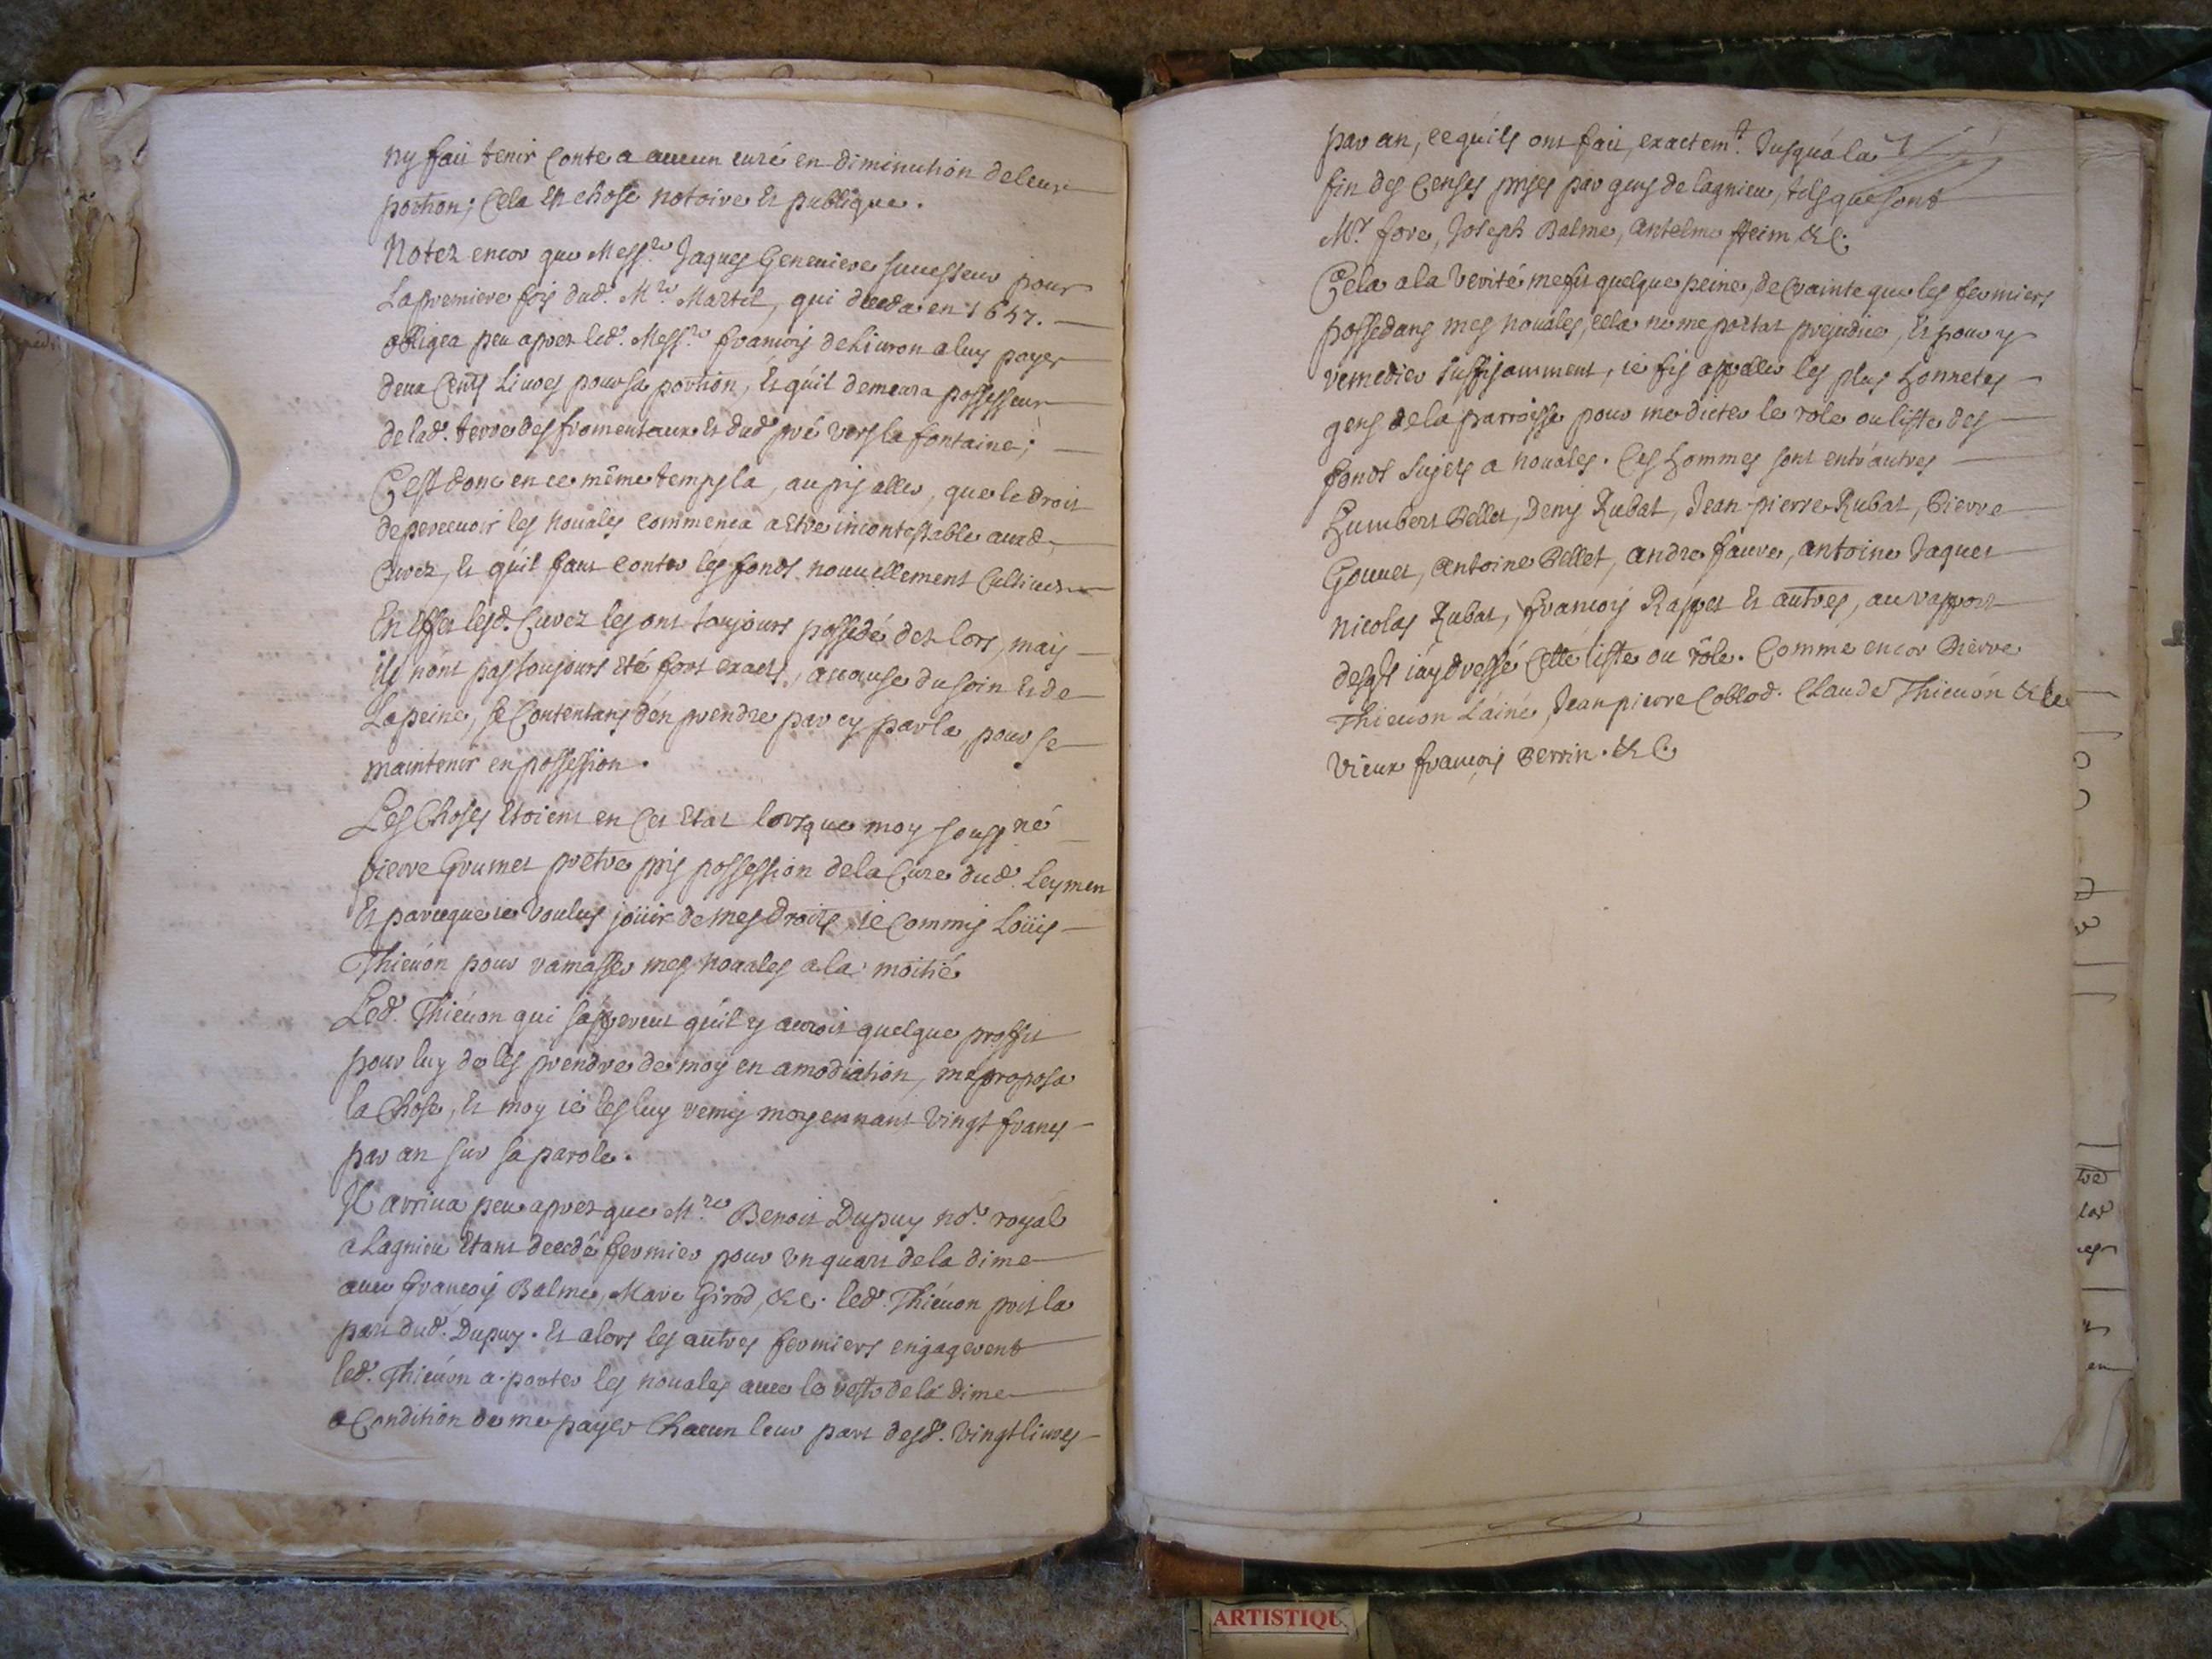 ny fait tenir conte a aucun curé en diminution de leur
portion; Cela est chose notoire et publique.
Notez encor que Mess.re Jaques Genevieve successeur pour
La premiere fois dud. M.re Martel, qui deceda en 1647.
obligea peu apres led. Mess.re francois de Liuron a luy payer
deux Cents Liures pour sa portion, Et qu'il demeura possesseur
de lad. terre des fromentaux et dud. pré vers la fontaine;
C'est donc en ce même temps la, au pis aller, que le droit
de perceuoir les nouales commenca a Etre incontestable auxd.
Curez, Et qu'il faut conter les fonds nouuellement Cultiuez
En effet lesd. Curez les ont toujours possedé dez lors, mais
ils nont pas toujours Eté fort exacts, a cause du soin Et de
La peine, se Contentans d'en prendre par cy par la, pour se
maintenir en possession.
Les Choses Etoient en Cet Etat lorsque moy soussiné
pierre Grumet prêtre pris possession de la Cure dud. Leymen
Et parceque ie voulus joüir de mes droits, ie Commis Loüis
Thieuon pour ramasser mes nouales a la moitié
Led. Thieuon qui s'apperceut qu'il y auroit quelque proffit
pour luy de les prendre de moy en amodiation, me proposa
la Chose, Et moy ie les luy remis moyennant vingt francs
par an sur sa parole.
Il arriua peu aprez que M.re Benoit Dupuy no.re royal
a Lagnieu Etant decedé fermier pour un quart de la dime
auec francois Balme, Marc Girod, &c. led. Thieuon prit la
part dud. Dupuy. Et alors les autres fermiers engagerent
led. Thieuon a porter les nouales auec le reste de la dime
a Condition de me payer Chacun leur part desd. vingt liures
par an, ce qu'ils ont fait exactem.t Jusqu'a la
fin des Censes prises par geus de lagnieu, tels que sont
M.r fore, Joseph Balme, antelme &c.
Cela a la verité me fit quelque peine, de Crainte que les fermiers
possedans mes nouales, cela ne me portat prejudice, Et pour y
remedier suffisamment, ie fis appeller les plus honnetes
gens de la parroisse pour me dicter le role ou liste des
fonds sujets a nouales. Ces hommes sont entr'autres
humbert Bellet, Denis Rubat, Jean-pierre Rubat, Pierre
Gouuet, Antoine Bellet, andre fauvre, antoine Jaquet
nicolas Rubat, francois Rappet Et autres, au rapport
desq.ls i'ay dressé Cette liste ou rôle. Comme encor Pierre
Thieuon L'ainé, Jean pierre Collod. Claude Thieuon & le
vieux francois Perrin. &c.
ARTISTIQU